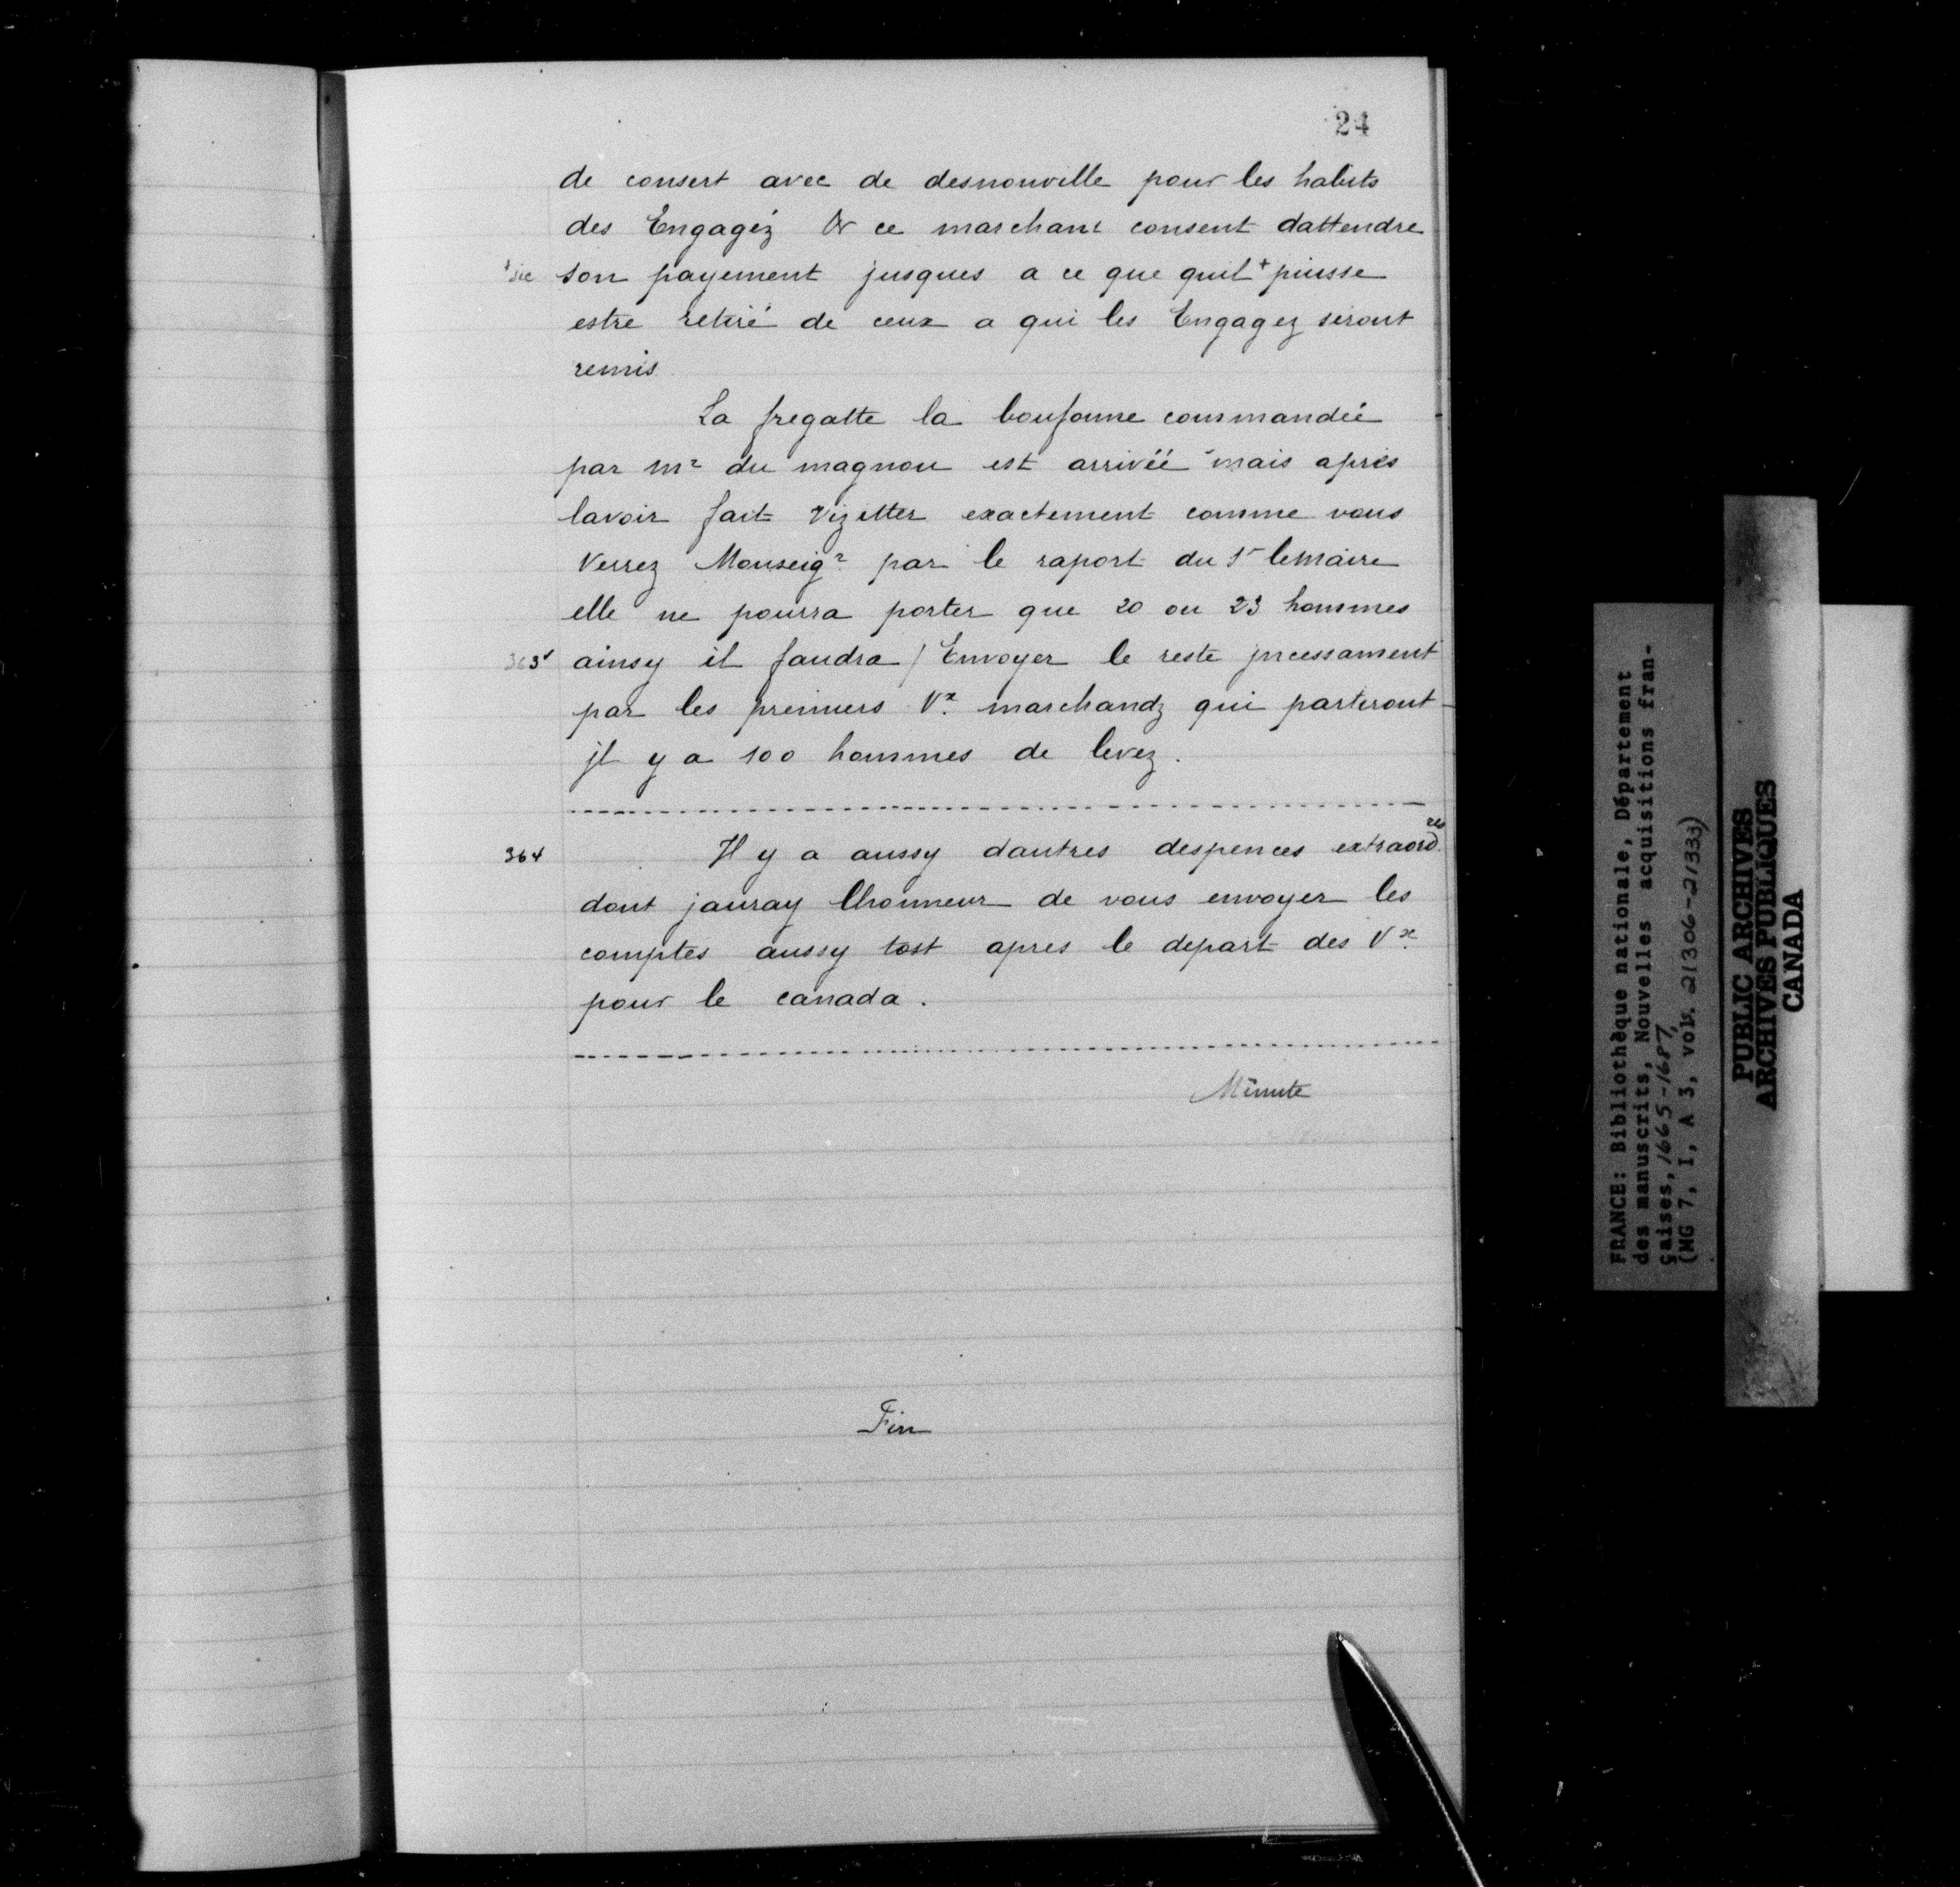 24
de consert avec de desnonville pour les habits
des Engagéz & ce marchant consent dattendre
+ sic son payement jusques a ce que quil + puisse
estre retiré de ceux a qui les Engagez seront
remis
La fregatte la boufonne commandée
par mr du magnou est arrivéé mais aprés
lavoir fait vizitter exactement comme vous
verrez Monseigr par le raport du Sr lemaire
elle ne pourra porter que 20 ou 23 hommes
363v ainsy il faudra / Envoyer le reste jncessament
par les premiers Vx. marchandz qui parteront
jl y a 100 hommes de levez.
364 Il y a aussy dautres despences extraord.res
dont jauray lhonneur de vous envoyer les
comptes aussy tost apres le depart des Vx.
pour le canada.
Minute
Fin
FRANCE: Bibliothèque nationale, Département
des manuscrits, Nouvelles acquisitions fran-
çaises, 1665-1687,
(MG 7, I, A 3, vols. 21306-21333)
PUBLIC ARCHIVES
ARCHIVES PUBLIQUES
CANADA